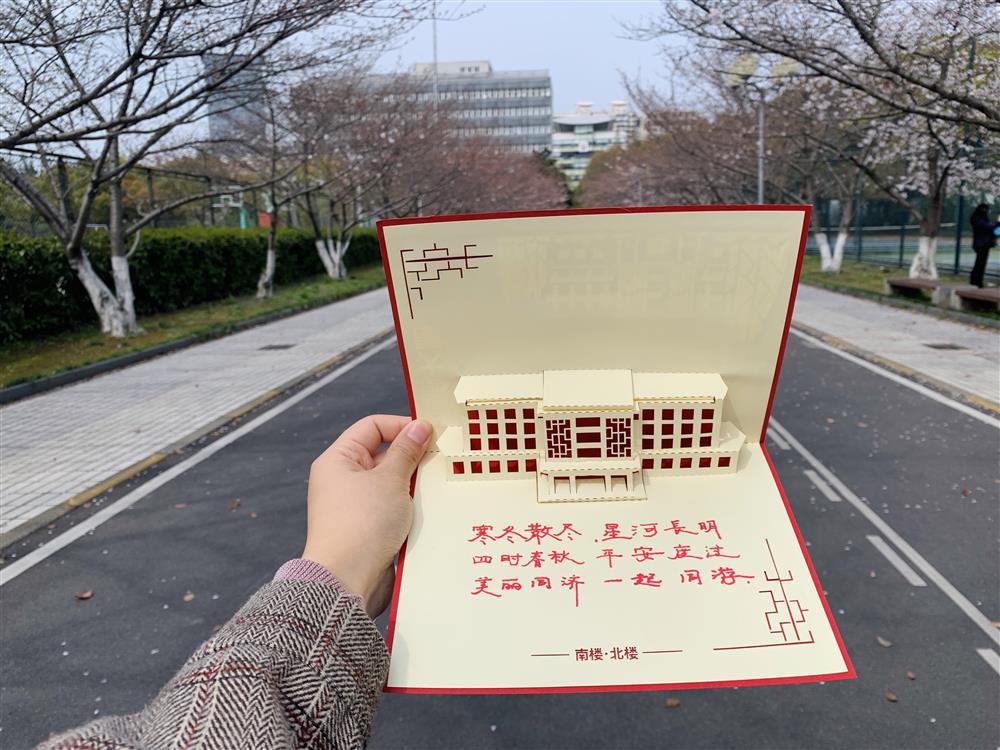 寒冬散尽,星河長明
四时春秋 平安一度过
美丽同济 一起 同游
南楼·北楼